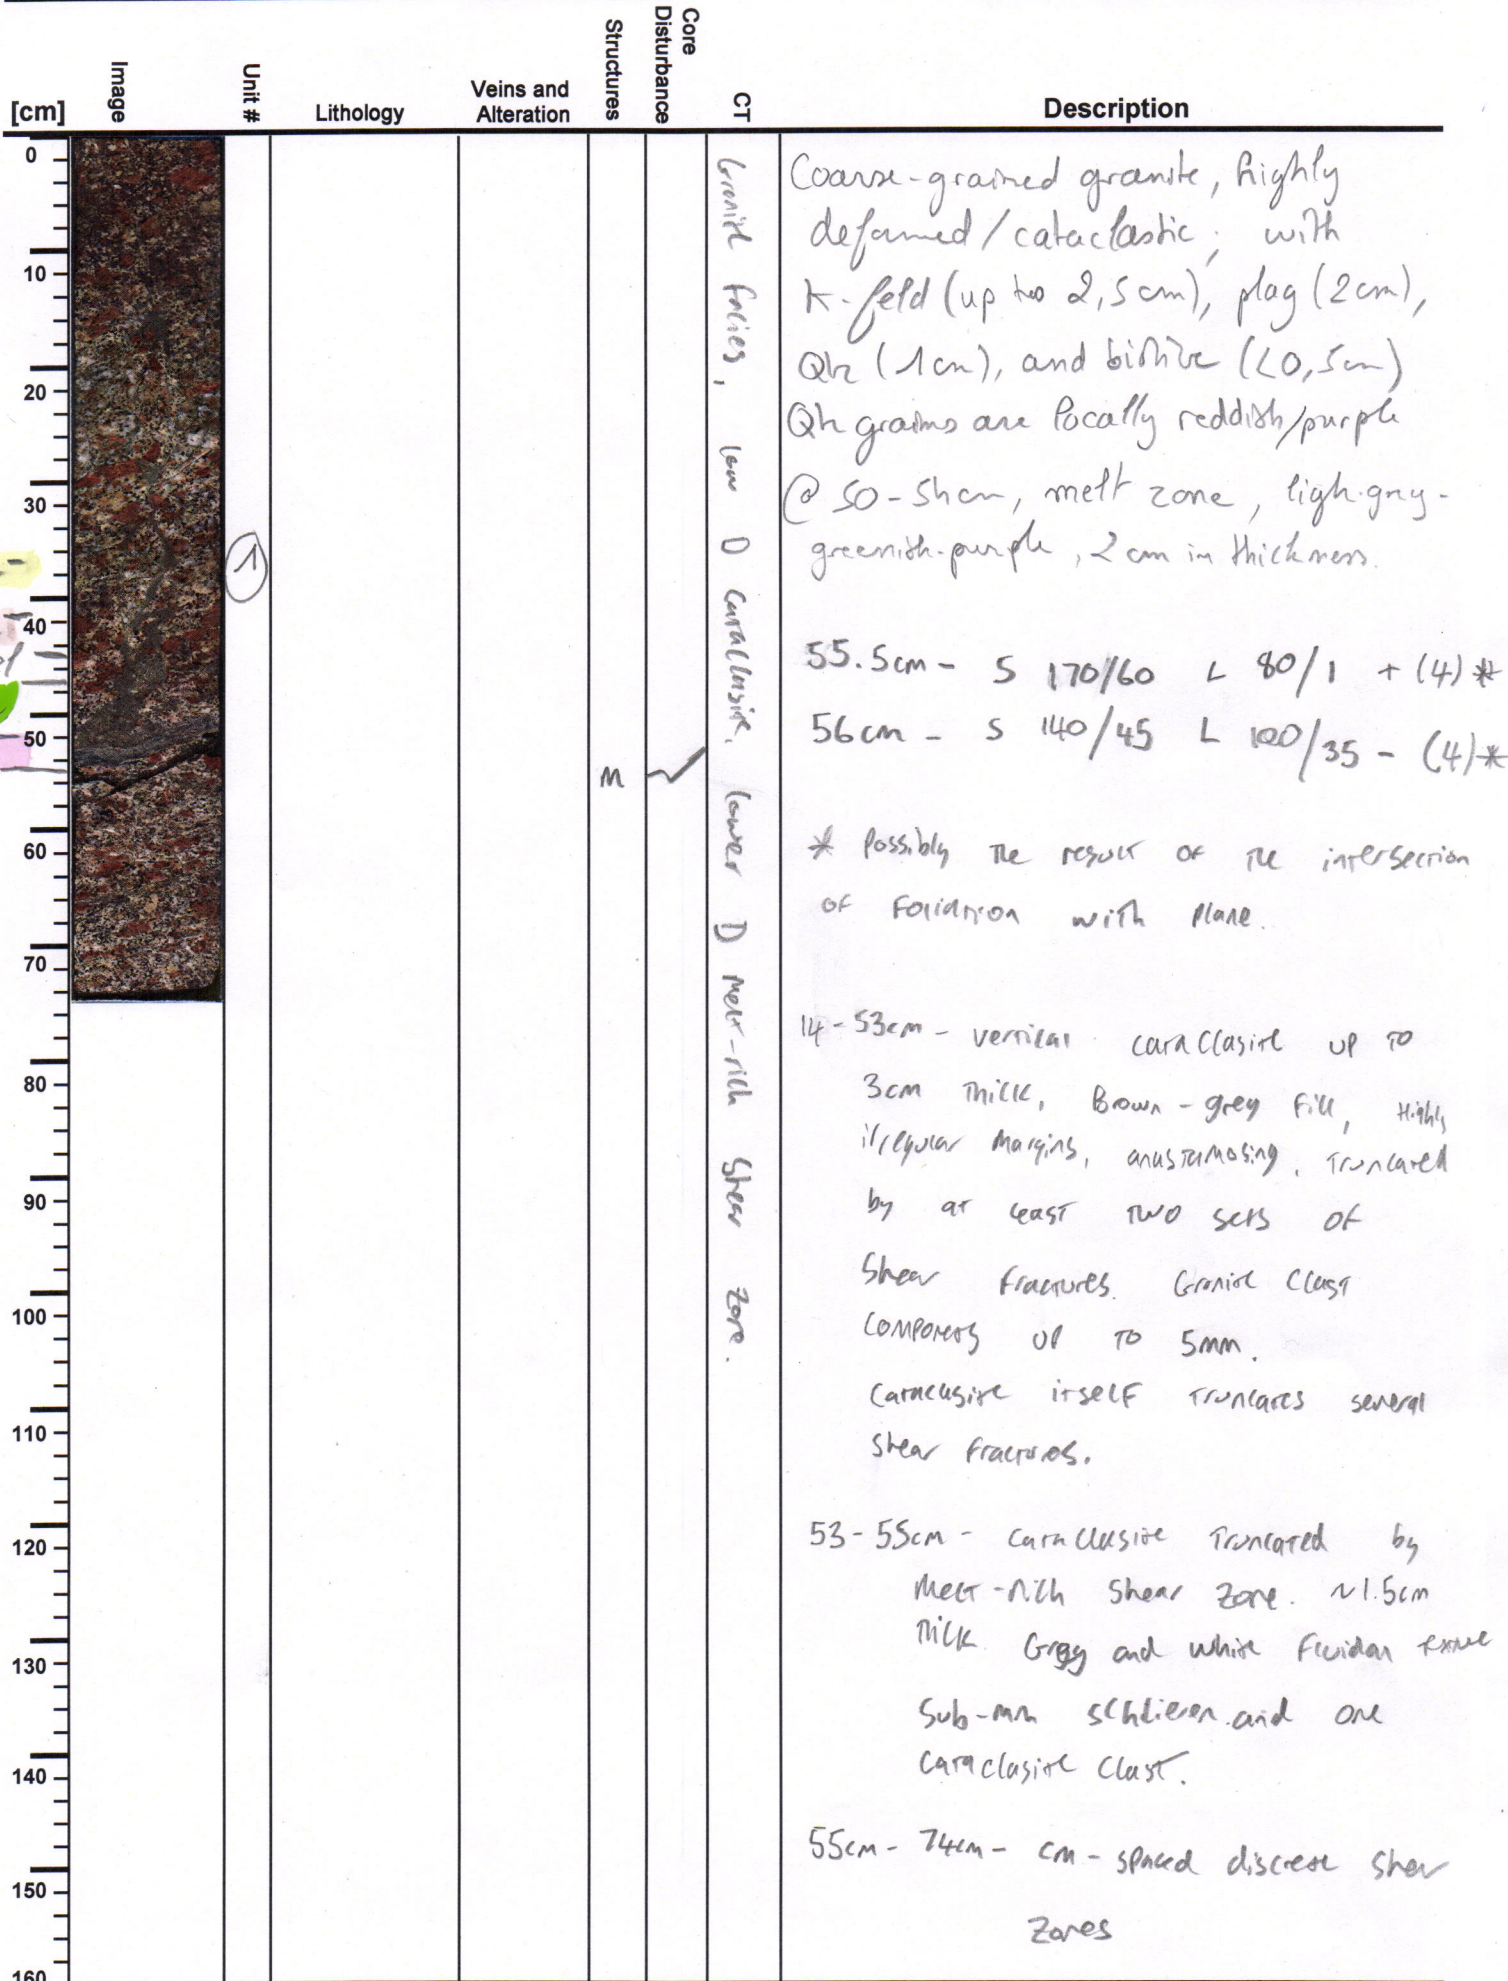 [cm]
Image
Unit #
Lithology
Veins and
Alteration
Structures
Core
Disturbance
CT
Description
0
10
20
30
40
50
60
70
80
90
100
110
120
130
140
150
160
1
M
Granite facies, low D cataclasite, lower D melt-rich shear zone.
Coarse-grained granite, highly
deformed/cataclastic; with
K-feld (up to 2,5 cm), plag (2cm),
Qtz (1cm), and biotite (<0,5cm)
Qtz grains are locally reddish/purple
@ 50-54cm, melt zone, ligh-grey-
greenish-purple, 2 cm in thickness.
55.5cm - S 170/60 L 80/1 + (4)*
56cm - S 140/45 L 100/35 - (4)*
* Possibly the result of the intersection
of foliation with plane.
14-53cm - vertical cataclasite up to
3cm thick, Brown-grey fill, Highly
irregular margins, anastamosing, truncated
by at least two sets of
shear fractures. Granite clast
components up to 5mm.
Cataclasite itself truncates several
shear fractures.
53-55cm - cataclasite truncated by
melt-rich shear zone. ~1.5cm
thick. Grey and white fluidan
sub-mm schlieren and one
cataclasite clast.
55cm-74cm - cm-spaced discrete shear
zones